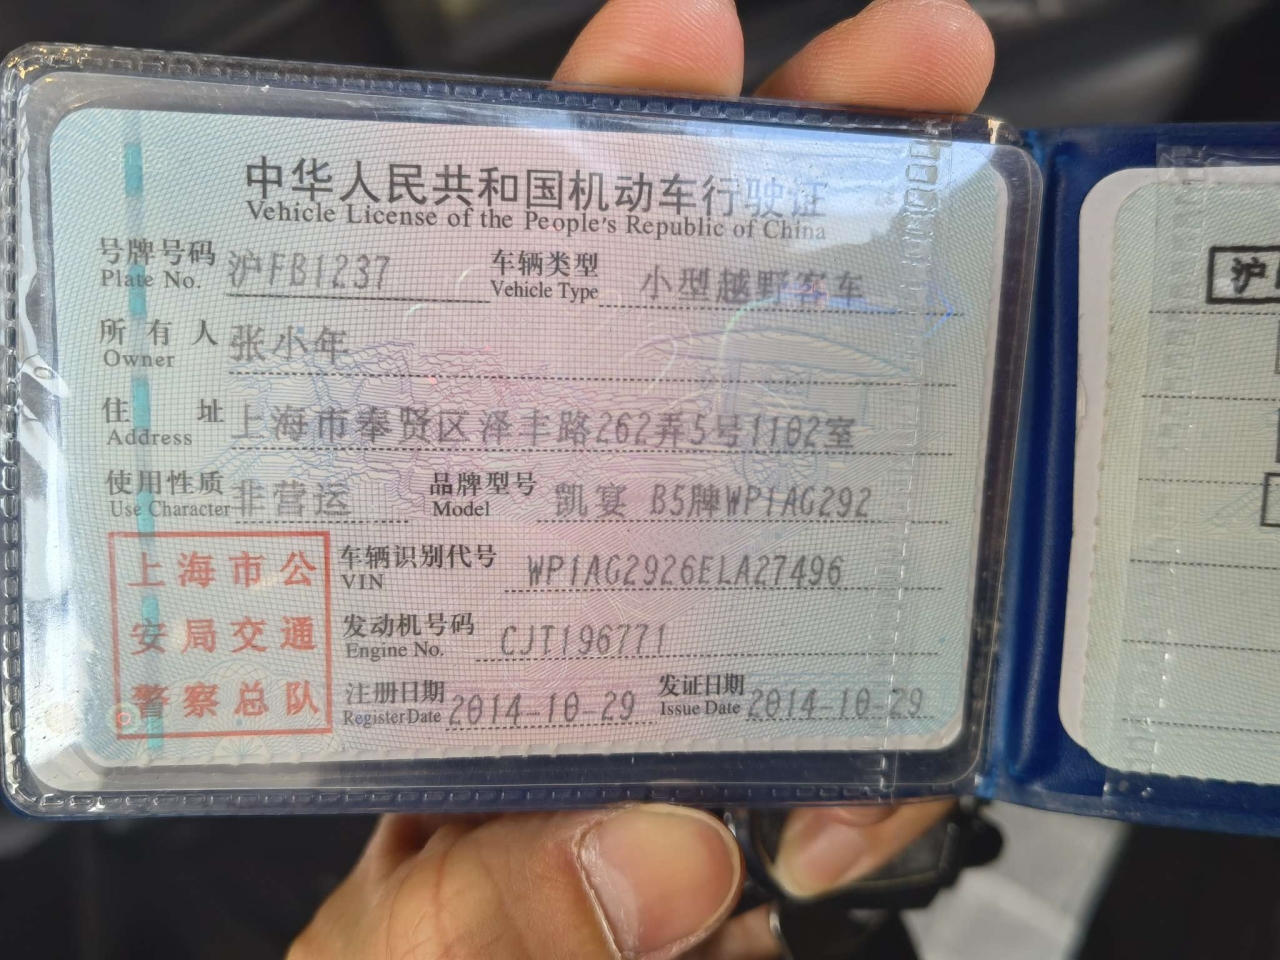 中华人民共和国机动车行驶证
Vehicle License of the People's Republic of China
号牌号码 沪FB1237 车辆类型 小型越野客车
Plate No. Vehicle Type
所有人 张小年
Owner
住址 上海市奉贤区泽丰路262弄5号1102室
Address
使用性质 非营运 品牌型号 凯宴 B5牌WP1AG292
Use Character Model
车辆识别代号 WP1AG2926ELA27496
VIN
发动机号码 CJT196771
Engine No.
注册日期 2014-10-29 发证日期 2014-10-29
Register Date Issue Date
上海市公
安局交通
警察总队
沪